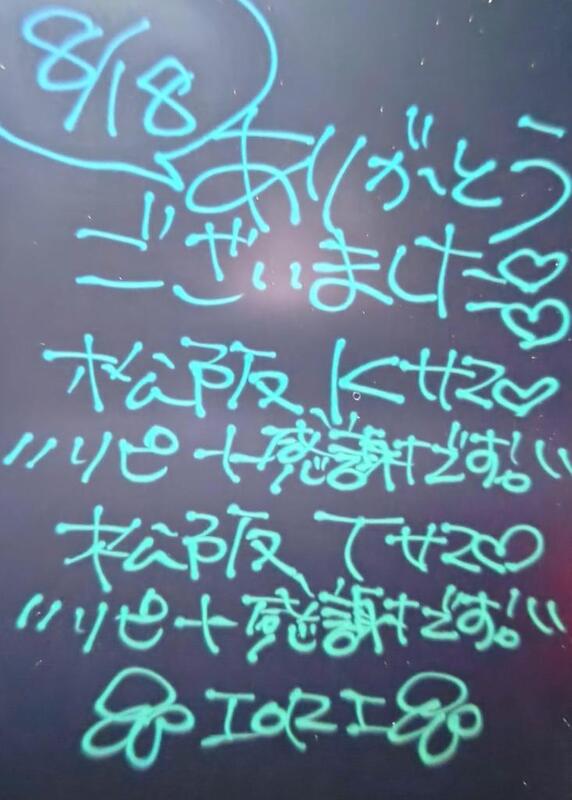 8/18
ありがとう
ございました♡♡
松阪、Kサマ♡
〃リピート感謝です!!〃
松阪、Tサマ♡
〃リピート感謝です!!〃
IORI